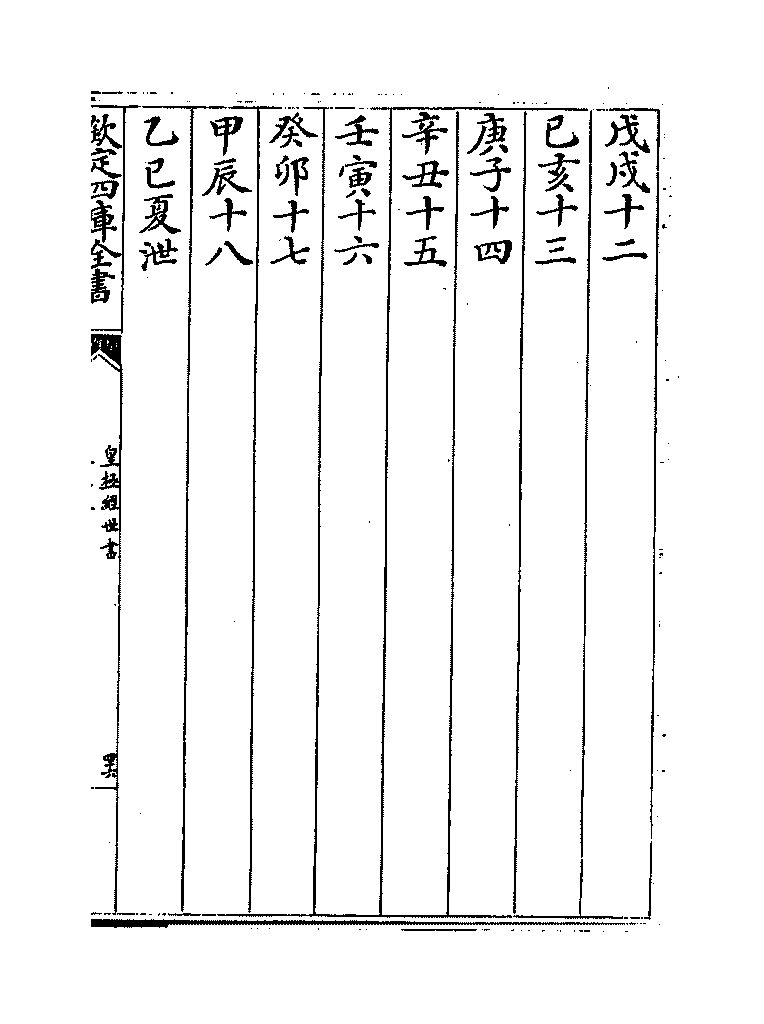 戊戌十二
己亥十三
庚子十四
辛丑十五
壬寅十六
癸卯十七
甲辰十八
乙巳夏泄
欽定四庫全書
皇極經世書